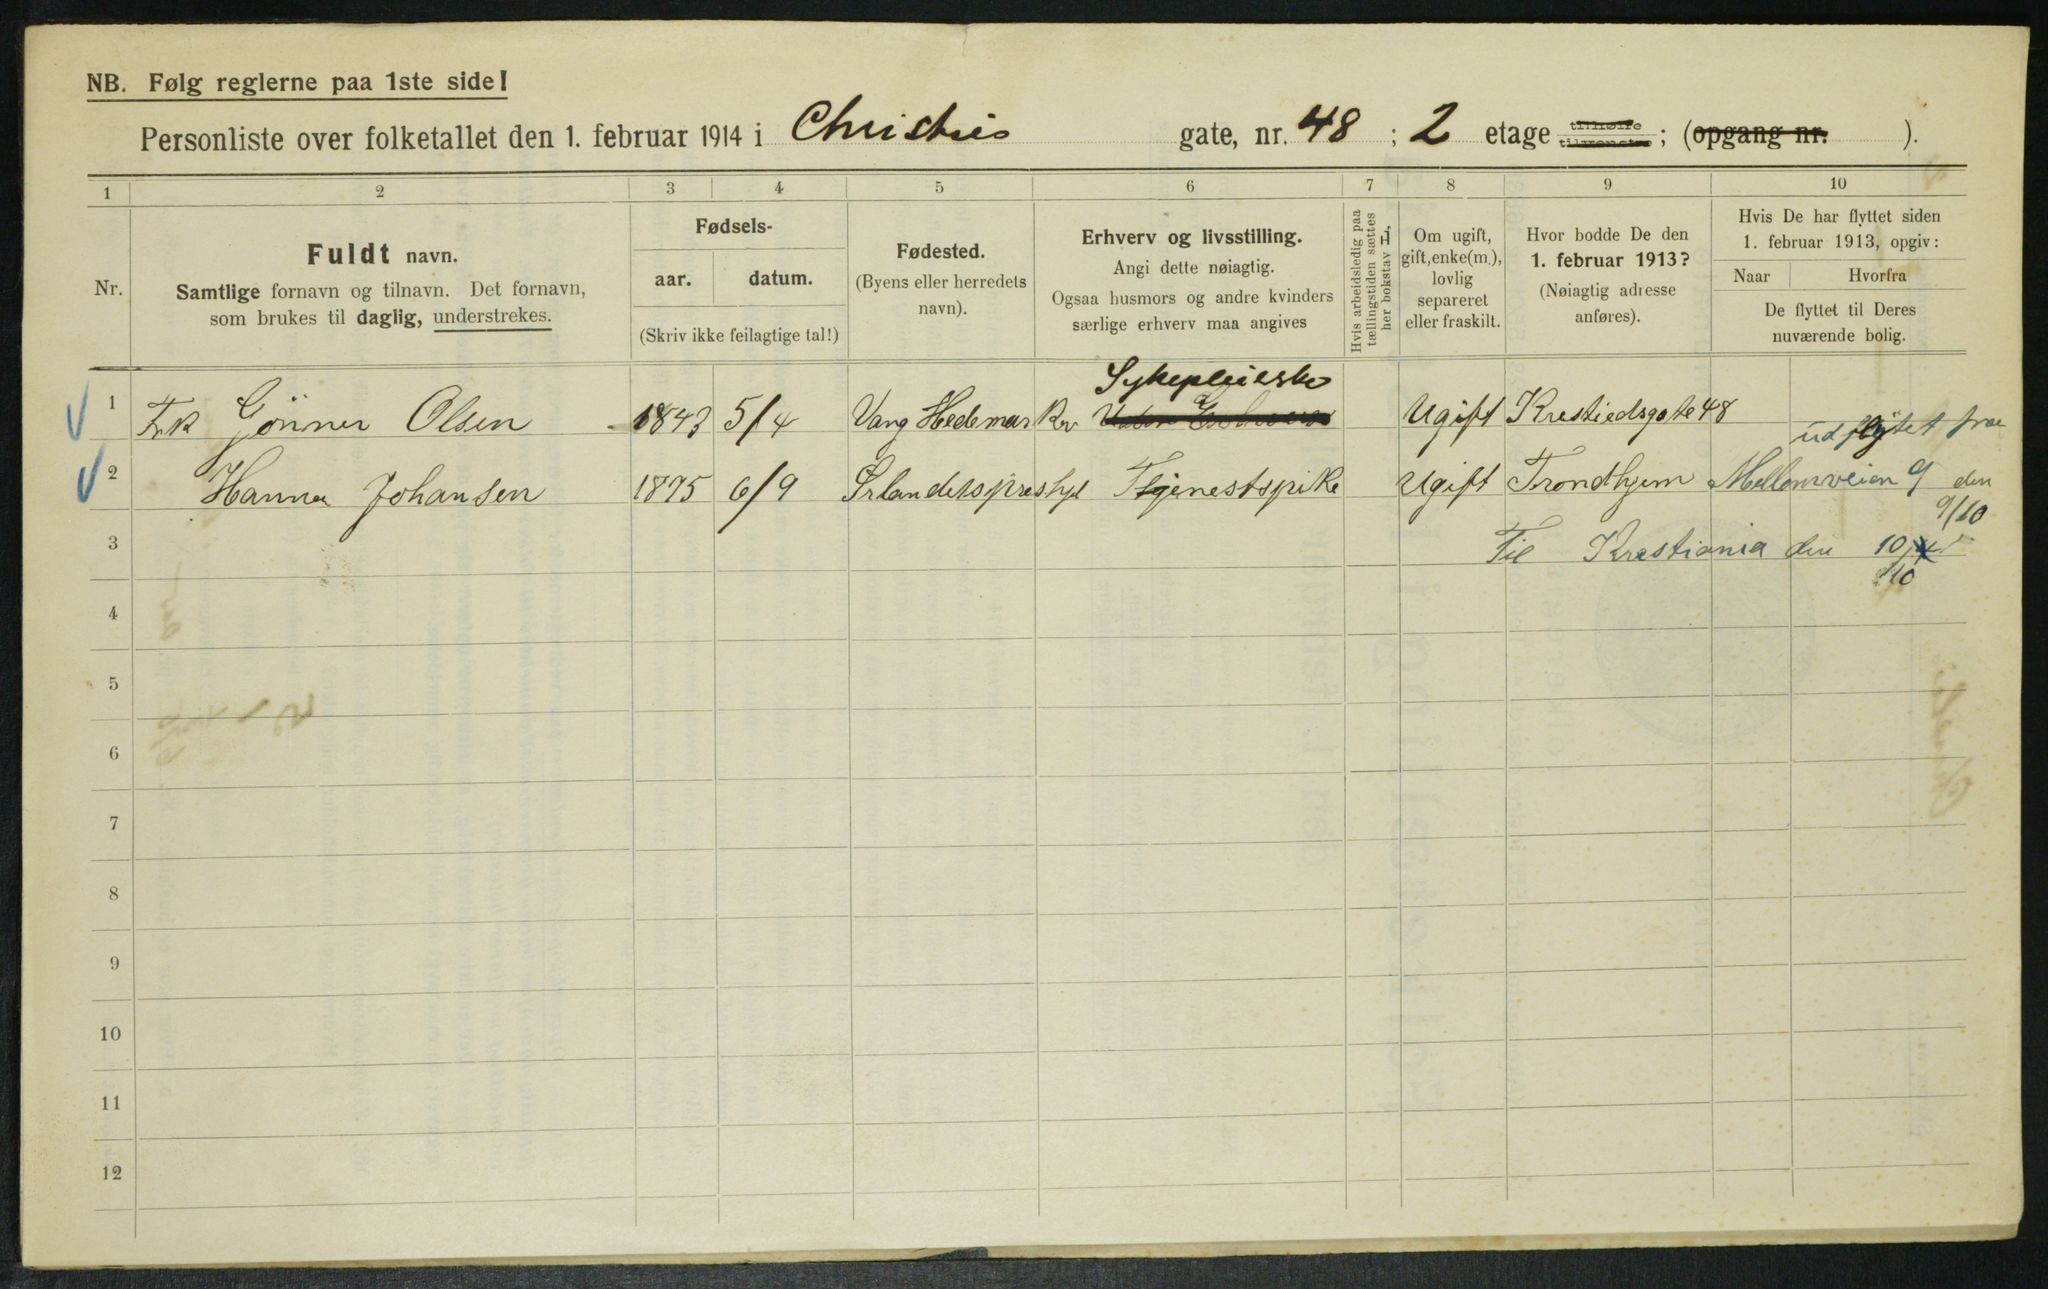 NB. Følg reglerne paa 1ste side!
Personliste over folketallet den 1. februar 1914 i Christies gate, nr. 48 ; 2 etage tilhøire tilvenstre ; (opgang nr. ).
1 2 3 4 5 6 7 8 9 10
Nr.
Fuldt navn.
Samtlige fornavn og tilnavn. Det fornavn,
som brukes til daglig, understrekes.
Fødsels-
aar. datum.
(Skriv ikke feilagtige tal!)
Fødested.
(Byens eller herredets
navn).
Erhverv og livsstilling.
Angi dette nøiagtig.
Ogsaa husmors og andre kvinders
særlige erhverv maa angives
Hvis arbeidsledig paa
tællingstiden sættes
her bokstav L.
Om ugift,
gift, enke(m.),
lovlig
separeret
eller fraskilt.
Hvor bodde De den
1. februar 1913?
(Nøiagtig adresse
anføres).
Hvis De har flyttet siden
1. februar 1913, opgiv:
Naar Hvorfra
De flyttet til Deres
nuværende bolig.
Sykepleierske
1 Frk Gönner Olsen 1843 5/4 Vang Hedemarken Ugift Krestiedsgate 48
udflyttet fra
2 Hanna Johansen 1895 6/9 Ørlandetspreshjl Tjenestspike Ugift Trondhjem Mellomveien 9 den
9/10
3 Til Krestiania den 10
/10
4
5
6
7
8
9
10
11
12